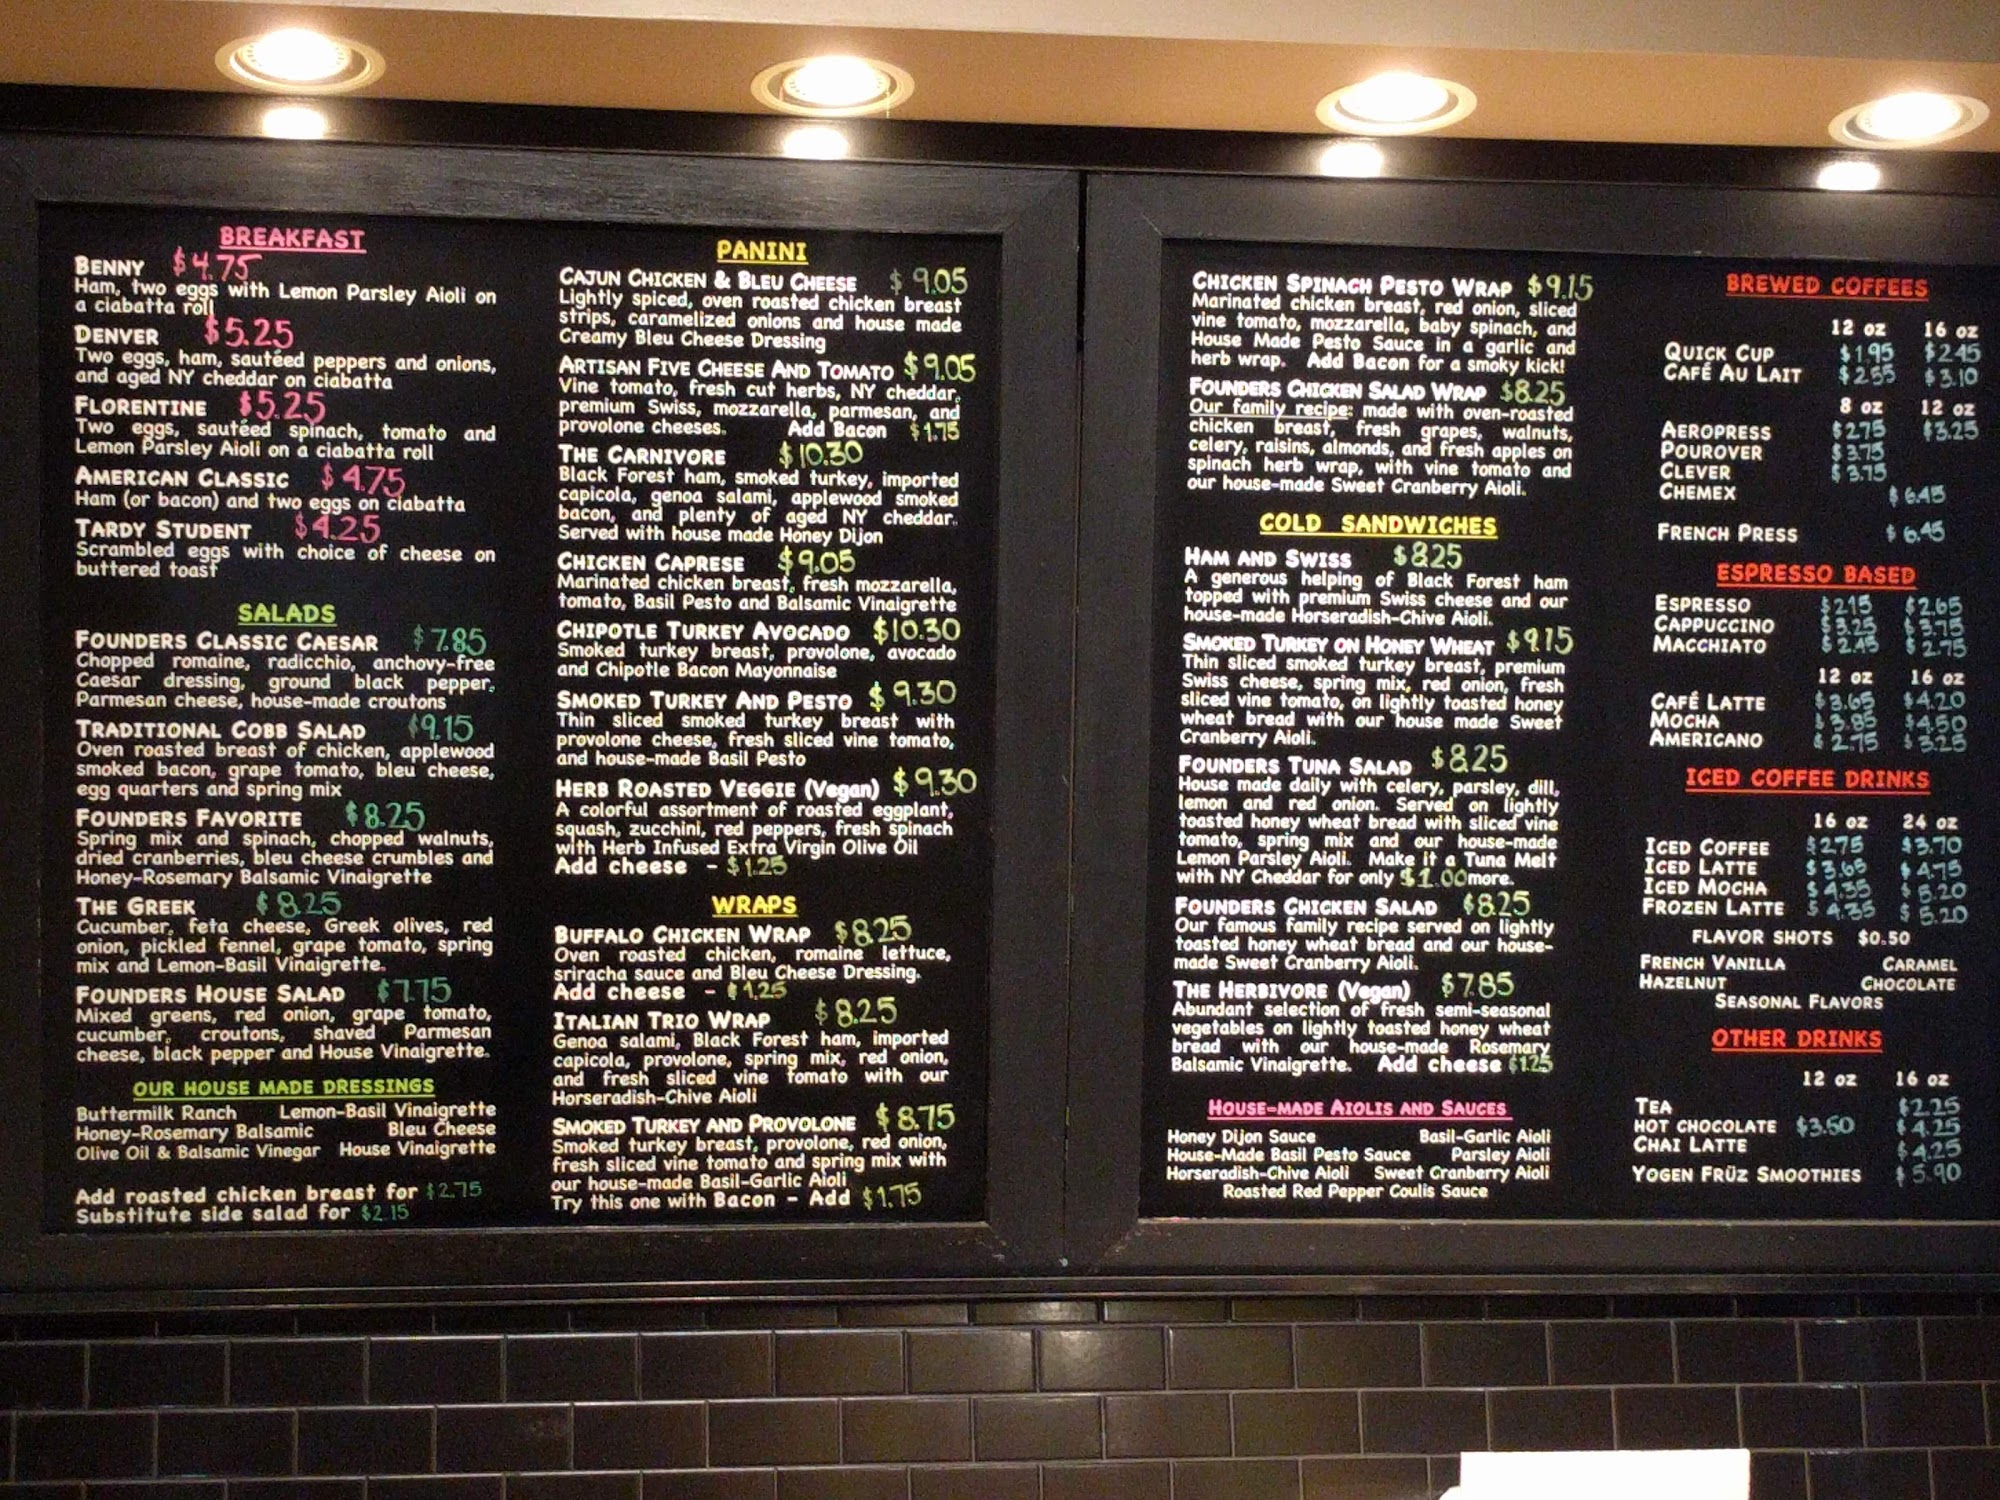 BREAKFAST
BENNY $4.75
Ham, two eggs with Lemon Parsley Aioli on
a ciabatta roll
DENVER $5.25
Two eggs, ham, sautéed peppers and onions,
and aged NY cheddar on ciabatta
FLORENTINE $5.25
Two eggs, sautéed spinach, tomato and
Lemon Parsley Aioli on a ciabatta roll
AMERICAN CLASSIC $4.75
Ham (or bacon) and two eggs on ciabatta
TARDY STUDENT $4.25
Scrambled eggs with choice of cheese on
buttered toast
SALADS
FOUNDERS CLASSIC CAESAR $7.85
Chopped romaine, radicchio, anchovy-free
Caesar dressing, ground black pepper,
Parmesan cheese, house-made croutons
TRADITIONAL COBB SALAD $9.15
Oven roasted breast of chicken, applewood
smoked bacon, grape tomato, bleu cheese,
egg quarters and spring mix
FOUNDERS FAVORITE $8.25
Spring mix and spinach, chopped walnuts,
dried cranberries, bleu cheese crumbles and
Honey-Rosemary Balsamic Vinaigrette
THE GREEK $8.25
Cucumber, feta cheese, Greek olives, red
onion, pickled fennel, grape tomato, spring
mix and Lemon-Basil Vinaigrette.
FOUNDERS HOUSE SALAD $7.75
Mixed greens, red onion, grape tomato,
cucumber, croutons, shaved Parmesan
cheese, black pepper and House Vinaigrette.
OUR HOUSE MADE DRESSINGS
Buttermilk Ranch Lemon-Basil Vinaigrette
Honey-Rosemary Balsamic Bleu Cheese
Olive Oil & Balsamic Vinegar House Vinaigrette
Add roasted chicken breast for $2.75
Substitute side salad for $2.15
PANINI
CAJUN CHICKEN & BLEU CHEESE $9.05
Lightly spiced, oven roasted chicken breast
strips, caramelized onions and house made
Creamy Bleu Cheese Dressing
ARTISAN FIVE CHEESE AND TOMATO $9.05
Vine tomato, fresh cut herbs, NY cheddar,
premium Swiss, mozzarella, parmesan, and
provolone cheeses. Add Bacon $1.75
THE CARNIVORE $10.30
Black Forest ham, smoked turkey, imported
capicola, genoa salami, applewood smoked
bacon, and plenty of aged NY cheddar.
Served with house made Honey Dijon
CHICKEN CAPRESE $9.05
Marinated chicken breast, fresh mozzarella,
tomato, Basil Pesto and Balsamic Vinaigrette
CHIPOTLE TURKEY AVOCADO $10.30
Smoked turkey breast, provolone, avocado
and Chipotle Bacon Mayonnaise
SMOKED TURKEY AND PESTO $9.30
Thin sliced smoked turkey breast with
provolone cheese, fresh sliced vine tomato,
and house-made Basil Pesto
HERB ROASTED VEGGIE (Vegan) $9.30
A colorful assortment of roasted eggplant,
squash, zucchini, red peppers, fresh spinach
with Herb Infused Extra Virgin Olive Oil
Add cheese - $1.25
WRAPS
BUFFALO CHICKEN WRAP $8.25
Oven roasted chicken, romaine lettuce,
sriracha sauce and Bleu Cheese Dressing.
Add cheese - $1.25
ITALIAN TRIO WRAP $8.25
Genoa salami, Black Forest ham, imported
capicola, provolone, spring mix, red onion,
and fresh sliced vine tomato with our
Horseradish-Chive Aioli
SMOKED TURKEY AND PROVOLONE $8.75
Smoked turkey breast, provolone, red onion,
fresh sliced vine tomato and spring mix with
our house-made Basil-Garlic Aioli
Try this one with Bacon - Add $1.75
CHICKEN SPINACH PESTO WRAP $9.15
Marinated chicken breast, red onion, sliced
vine tomato, mozzarella, baby spinach, and
House Made Pesto Sauce in a garlic and
herb wrap. Add Bacon for a smoky kick!
FOUNDERS CHICKEN SALAD WRAP $8.25
Our family recipe: made with oven-roasted
chicken breast, fresh grapes, walnuts,
celery, raisins, almonds, and fresh apples on
spinach herb wrap, with vine tomato and
our house-made Sweet Cranberry Aioli.
COLD SANDWICHES
HAM AND SWISS $8.25
A generous helping of Black Forest ham
topped with premium Swiss cheese and our
house-made Horseradish-Chive Aioli.
SMOKED TURKEY ON HONEY WHEAT $9.15
Thin sliced smoked turkey breast, premium
Swiss cheese, spring mix, red onion, fresh
sliced vine tomato, on lightly toasted honey
wheat bread with our house made Sweet
Cranberry Aioli.
FOUNDERS TUNA SALAD $8.25
House made daily with celery, parsley, dill,
lemon and red onion. Served on lightly
toasted honey wheat bread with sliced vine
tomato, spring mix and our house-made
Lemon Parsley Aioli. Make it a Tuna Melt
with NY Cheddar for only $1.00 more.
FOUNDERS CHICKEN SALAD $8.25
Our famous family recipe served on lightly
toasted honey wheat bread and our house-
made Sweet Cranberry Aioli.
THE HERBIVORE (Vegan) $7.85
Abundant selection of fresh semi-seasonal
vegetables on lightly toasted honey wheat
bread with our house-made Rosemary
Balsamic Vinaigrette. Add cheese $1.25
HOUSE-MADE AIOLIS AND SAUCES
Honey Dijon Sauce Basil-Garlic Aioli
House-Made Basil Pesto Sauce Parsley Aioli
Horseradish-Chive Aioli Sweet Cranberry Aioli
Roasted Red Pepper Coulis Sauce
BREWED COFFEES
12 oz 16 oz
QUICK CUP $1.95 $2.45
CAFÉ AU LAIT $2.55 $3.10
8 oz 12 oz
AEROPRESS $2.75 $3.25
POUROVER $3.75
CLEVER $3.75
CHEMEX $6.45
FRENCH PRESS $6.45
ESPRESSO BASED
ESPRESSO $2.15 $2.65
CAPPUCCINO $3.25 $3.75
MACCHIATO $2.45 $2.75
12 oz 16 oz
CAFÉ LATTE $3.65 $4.20
MOCHA $3.85 $4.50
AMERICANO $2.75 $3.25
ICED COFFEE DRINKS
16 oz 24 oz
ICED COFFEE $2.75 $3.70
ICED LATTE $3.65 $4.75
ICED MOCHA $4.35 $5.20
FROZEN LATTE $4.35 $5.20
FLAVOR SHOTS $0.50
FRENCH VANILLA CARAMEL
HAZELNUT CHOCOLATE
SEASONAL FLAVORS
OTHER DRINKS
12 oz 16 oz
TEA $2.25
HOT CHOCOLATE $3.60 $4.25
CHAI LATTE $4.25
YOGEN FRÜZ SMOOTHIES $5.90